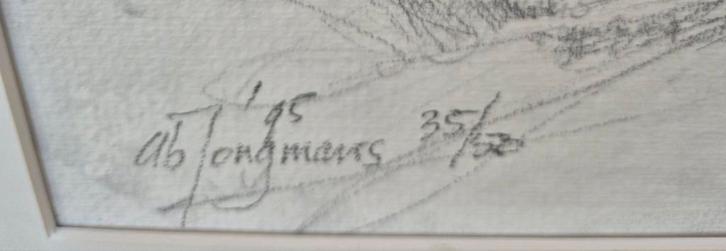 '95
ab Jongmans 35/50